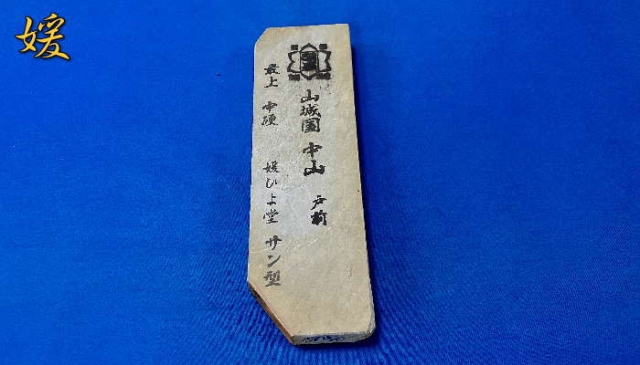 媛
山城国 中山 戸前
最上 中硬 媛ひよ堂 サン型